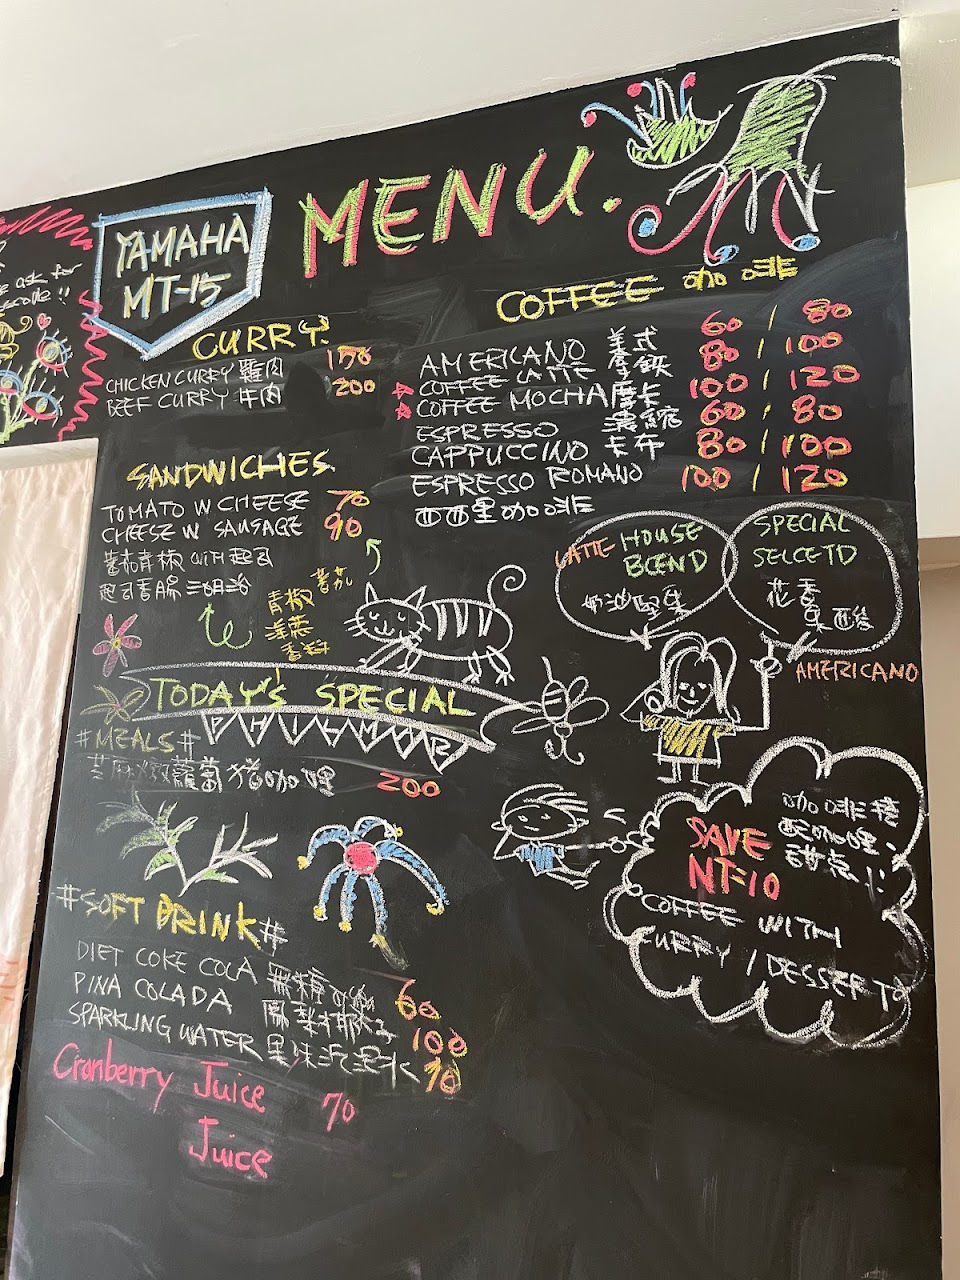 ask for
YAMAHA
MT-15
MENU.
CURRY
CHICKEN CURRY 雞肉 150
BEEF CURRY 牛肉 200
COFFEE 咖啡
AMERICANO 美式 60 / 80
COFFEE LATTE 拿鐵 80 / 100
COFFEE MOCHA 摩卡 100 / 120
ESPRESSO 濃縮 60 / 80
CAPPUCCINO 卡布 80 / 100
ESPRESSO ROMANO 100 / 120
西西里咖啡
SANDWICHES
TOMATO W CHEESE 70
CHEESE W SAUSAGE 90
蕃茄青椒 WITH 起司
起司香腸三明治
蕃茄
青椒
洋蔥
香料
LATTE HOUSE
BLEND
奶油堅果
SPECIAL
SELCETD
花香
果酸
AMERICANO
TODAY'S SPECIAL
#MEALS#
芝麻嫩蘿蔔豬咖哩 200
#SOFT DRINK#
DIET COKE COLA 無糖可樂 60
PINA COLADA 鳳梨椰子 100
SPARKLING WATER 果味汽泡水 70
Cranberry Juice 70
Juice
SAVE
NT=10
咖啡
配咖哩.
甜点
COFFEE WITH
CURRY / DESSERT